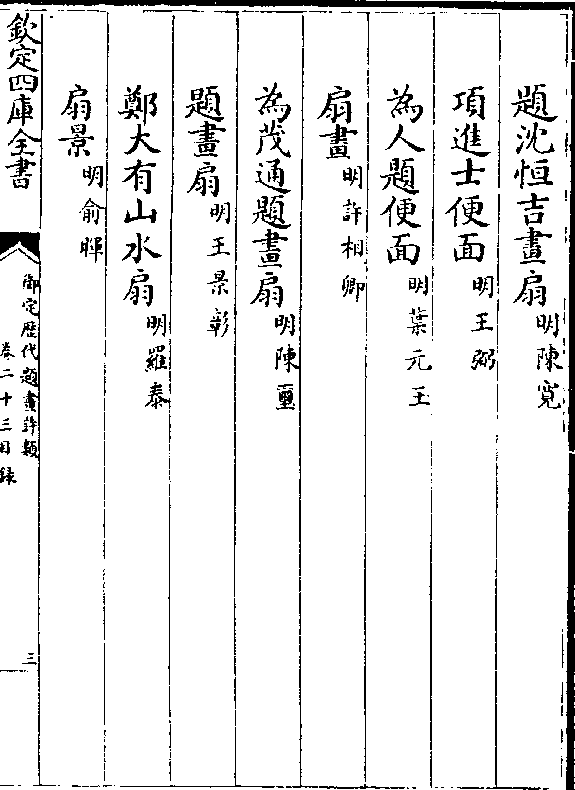 題沈恒吉畫扇 明陳寛
項進士便面 明王弼
為人題便面 明葉元玉
扇畫 明許相卿
為茂通題畫扇 明陳璽
題畫扇 明王景彰
鄭大有山水扇 明羅泰
扇景 明俞暉
欽定四庫全書
御定歴代題畫詩類
卷二十三目錄
三